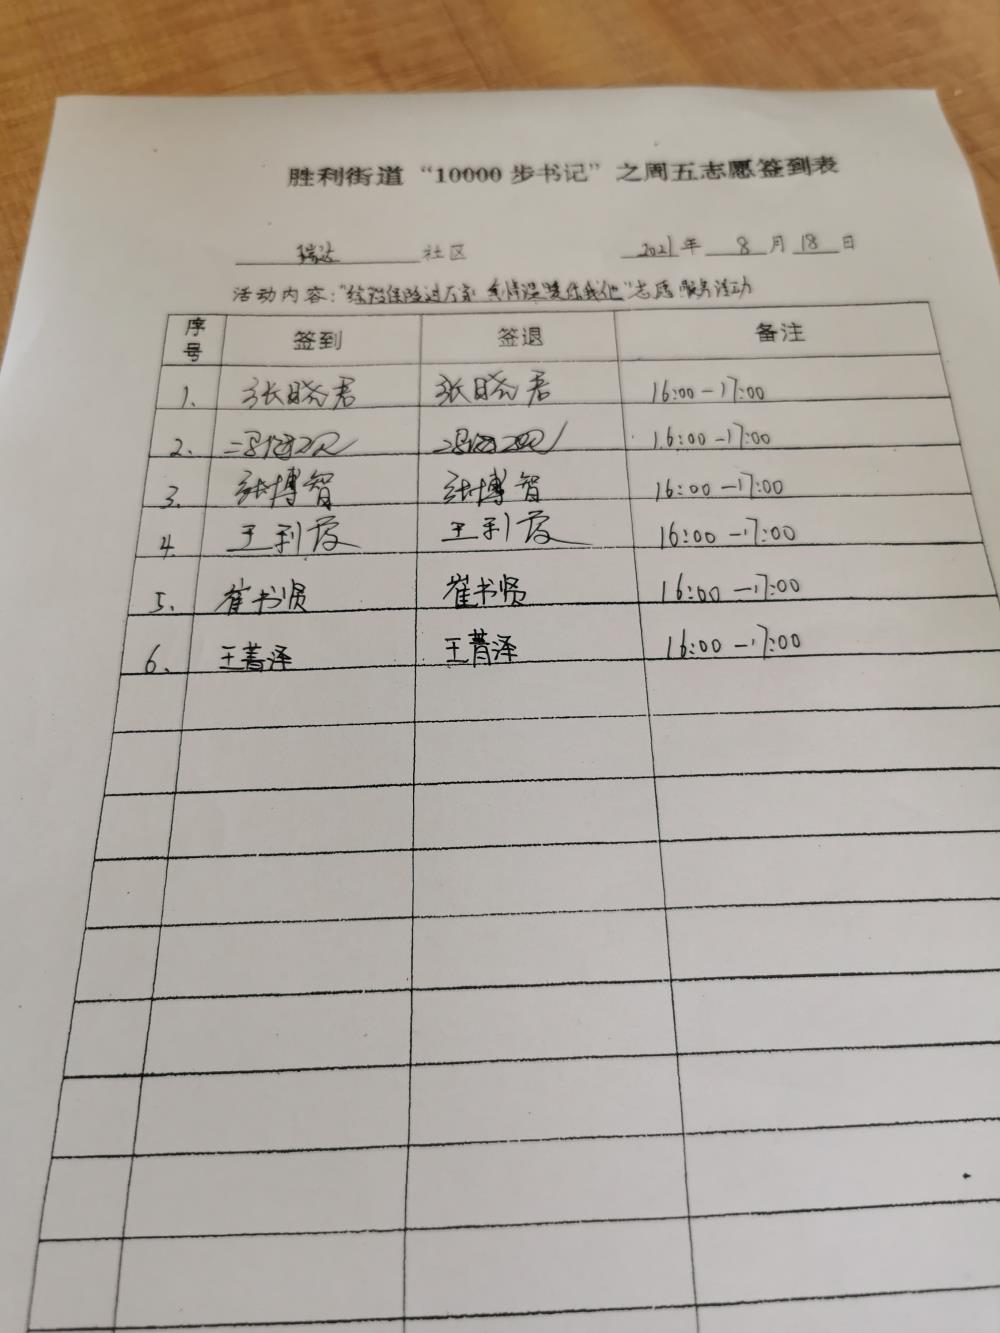 胜利街道“10000步书记”之周五志愿签到表
瑞达 社区 2021年 8月18日
活动内容:“ 保险进万家 真情温暖你我他”志愿服务活动
序号 签到 签退 备注
1、 张晓君 张晓君 16:00-17:00
2、 16:00-17:00
3、 张博智 张博智 16:00-17:00
4、 王利霞 王利霞 16:00-17:00
5、 崔书贤 崔书贤 16:00-17:00
6、 王菁泽 王菁泽 16:00-17:00